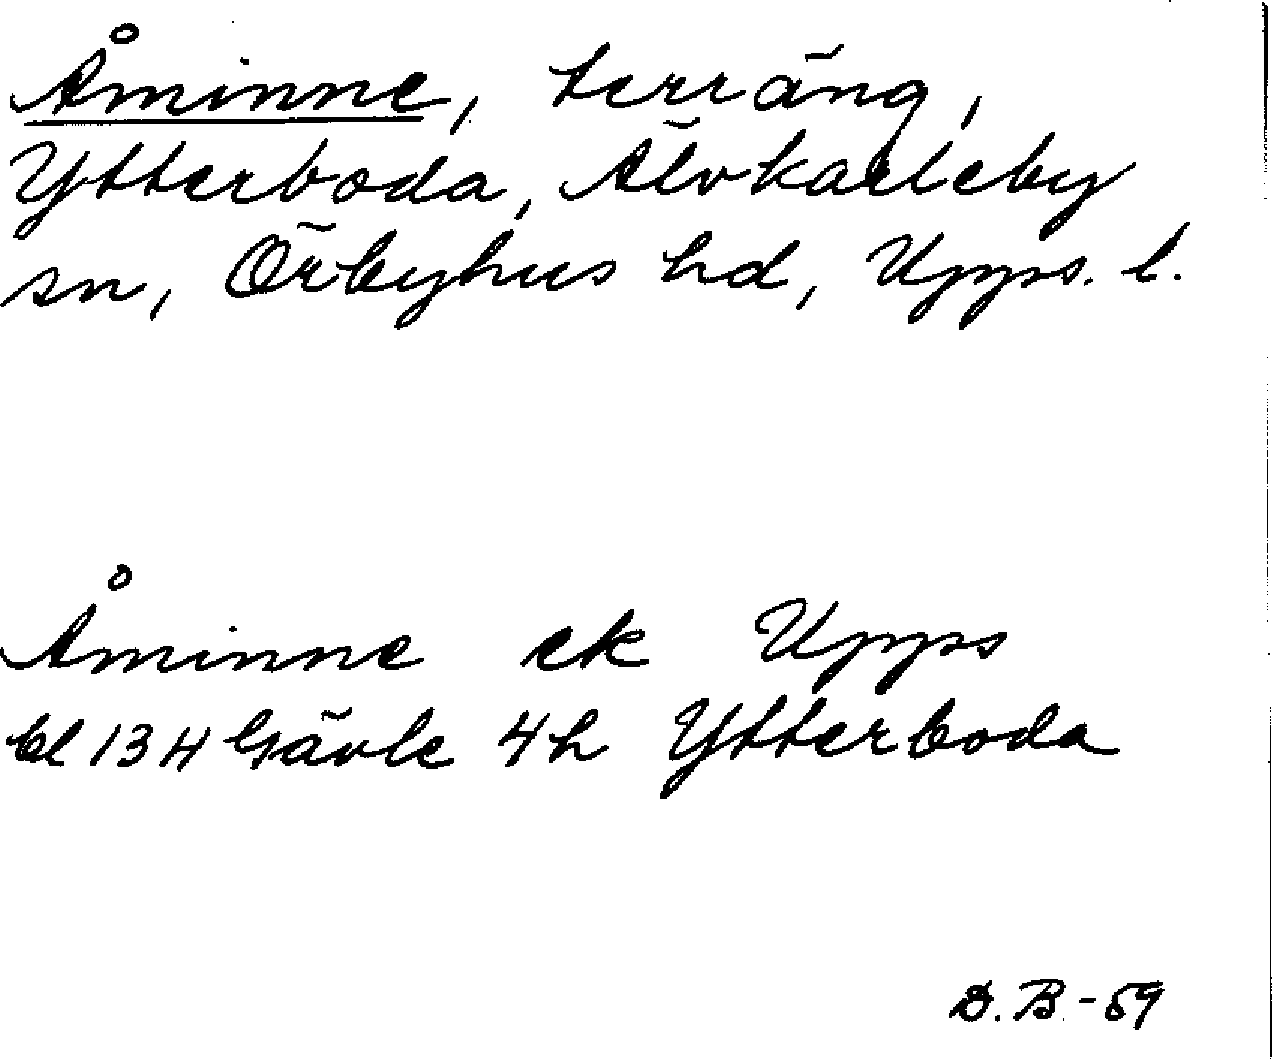 Åminne, terräng,
Ytterboda, Älvkarleby
sn, Örbyhus hd, Upps. l.
Åminne ek Upps
bl 13 H Gävle 4h Ytterboda
B. B. - 59